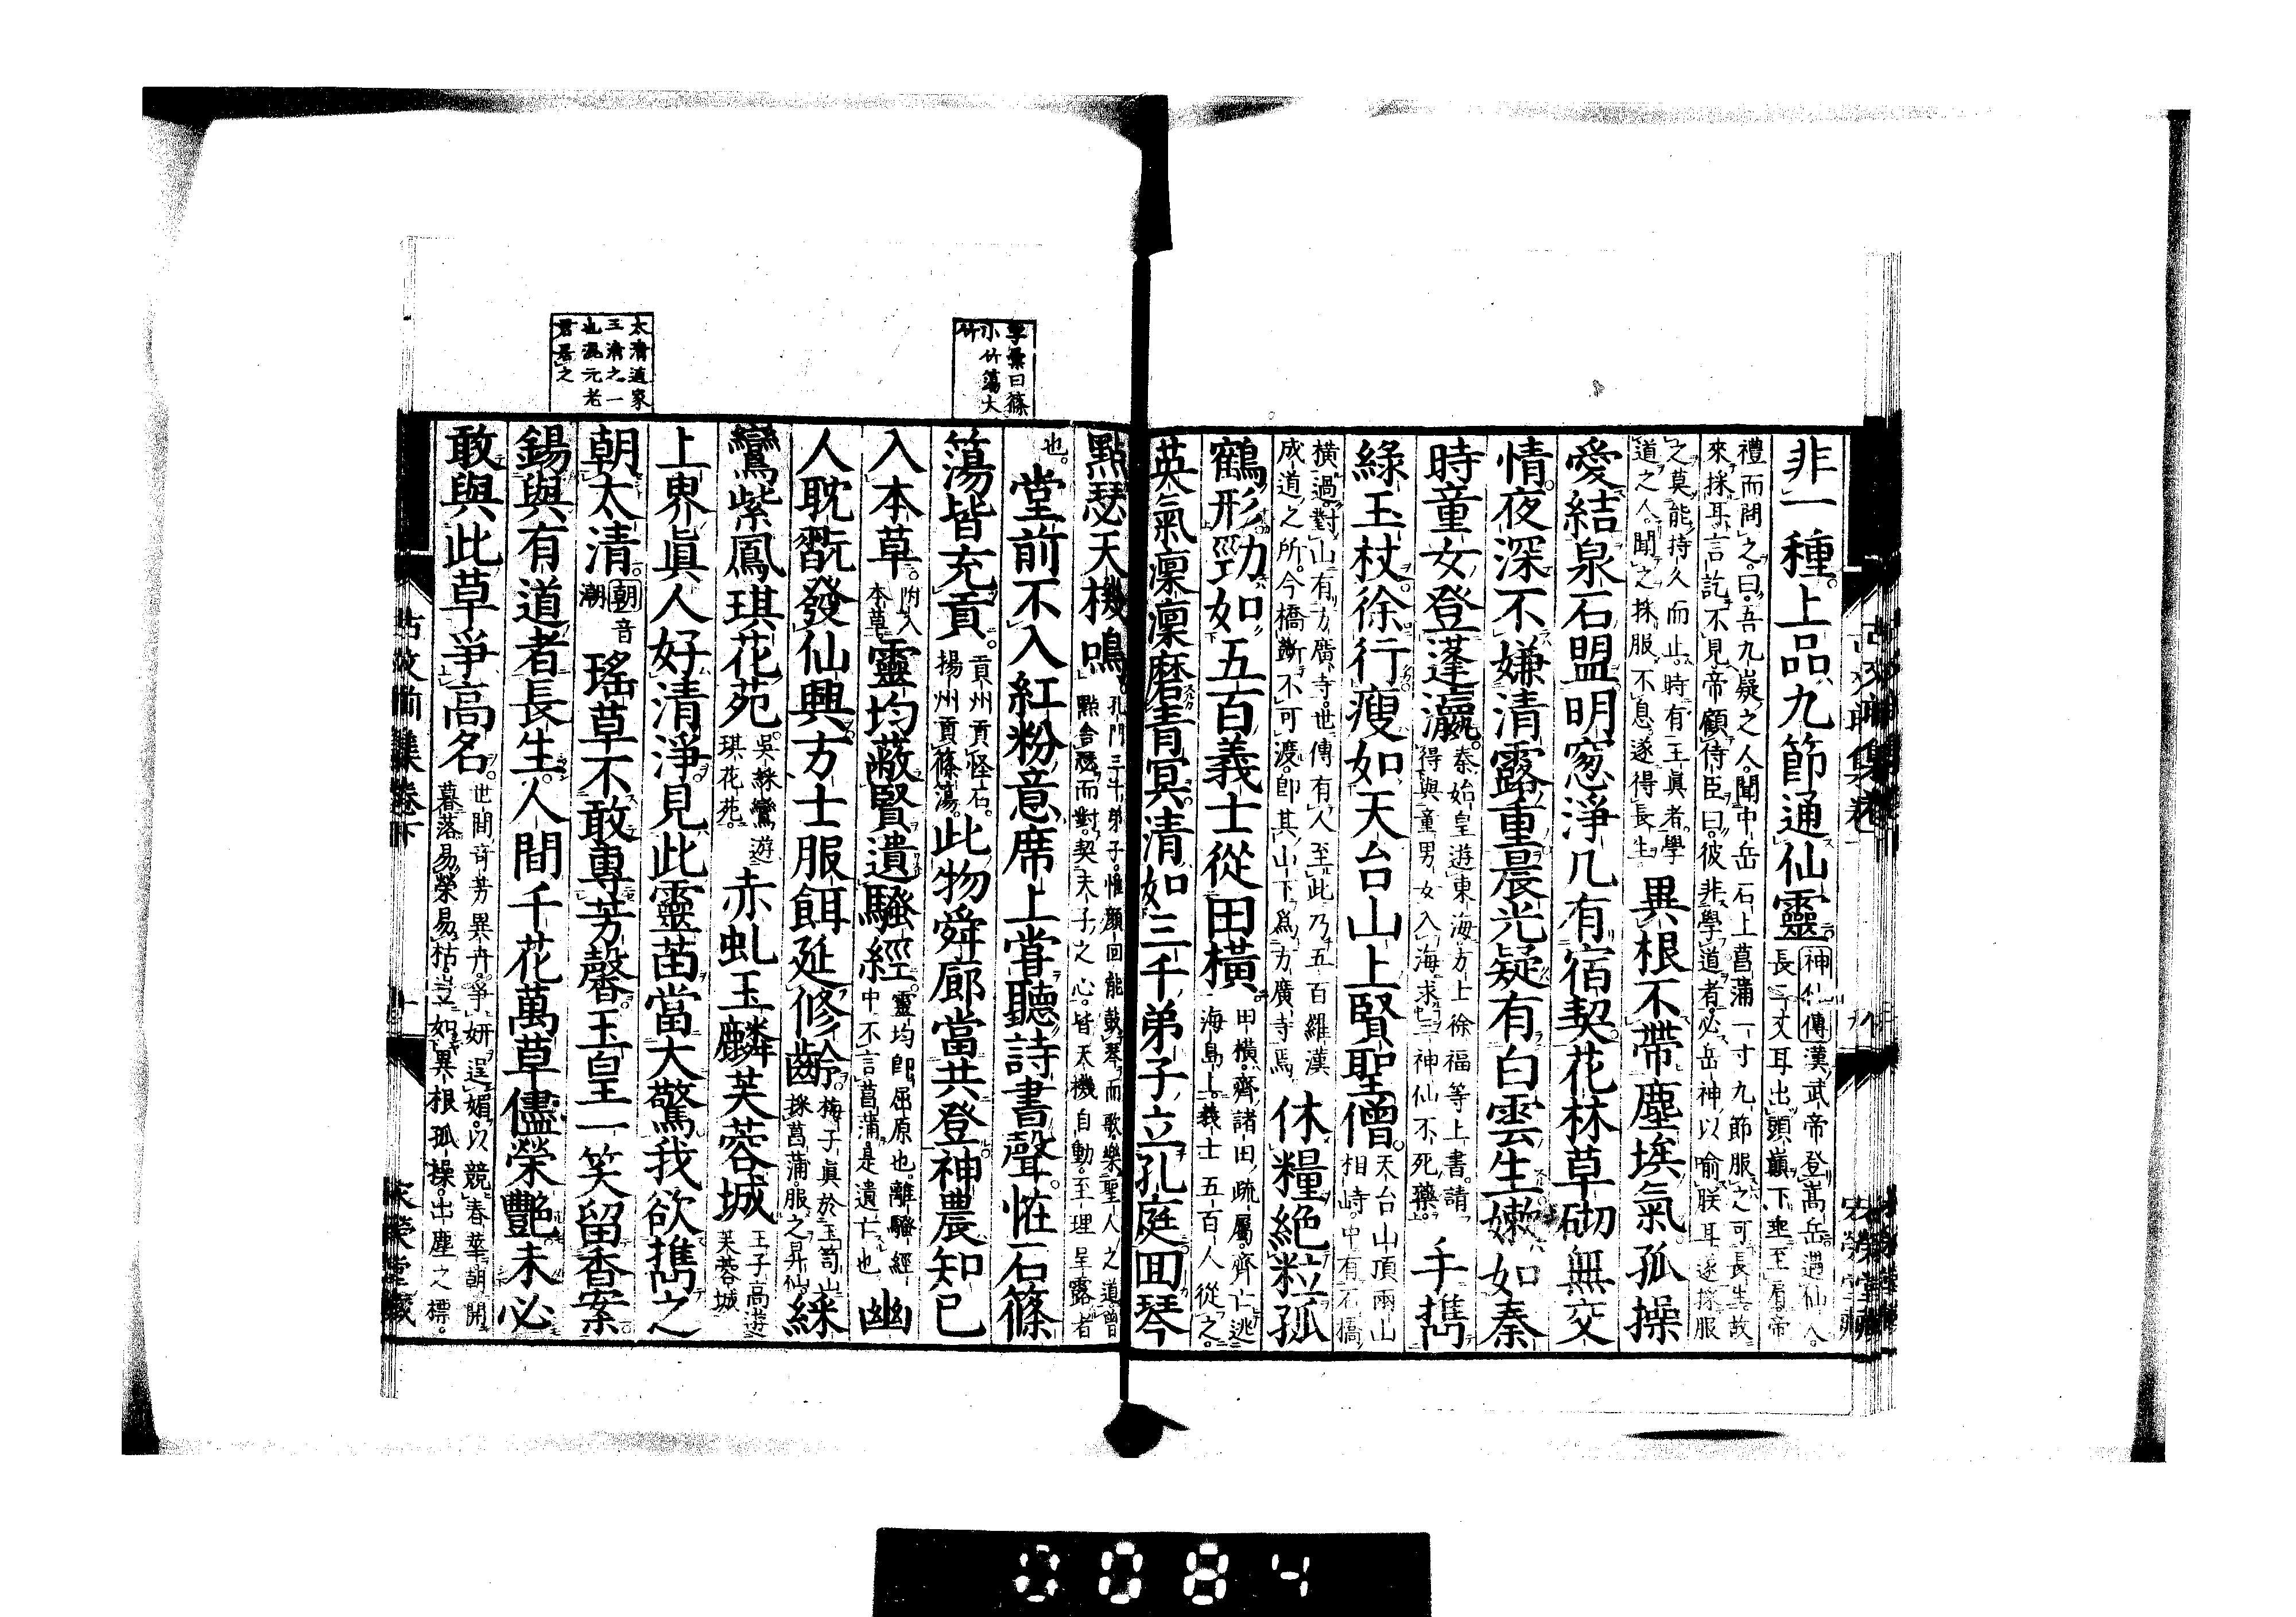 非一種上品九節通仙靈神仙傳漢武帝登嵩岳遇仙人
長二丈耳出頭巓下垂至肩帝
禮而問之曰吾九嶷之人聞中岳石上菖蒲一寸九節服之可長生故
來採耳言訖不見帝顧侍臣曰彼非學道者必岳神以喻朕耳遂採服
之莫能持久而止時有王眞者學
道之人聞之採服不息遂得長生異根不帶塵埃氣孤操
愛結泉石盟明窓淨几有宿契花林草砌無交
情夜深不嫌清露重晨光疑有白雲生嫩如秦
時童女登蓬瀛秦始皇遊東海方上徐福等上書請
得與童男女入海求三神仙不死藥手攜
綠玉杖徐行瘦如天台山上賢聖僧天台山頂兩山
相峙中有石橋
横過對山有方廣寺世傳有人至此乃五百羅漢
成道之所今橋斷不可渡即其山下爲方廣寺焉休糧絶粒孤
鶴形勁如五百義士從田橫田橫齊諸田疏屬齊亡逃
海島上義士五百人從之
英氣凜凜磨青冥清如三千弟子立孔庭回琴
點瑟天機鳴孔門三千弟子惟顏回能鼓琴而歌樂聖人之道曾
點舍瑟而對契夫子之心皆天機自動至理呈露者
也堂前不入紅粉意席上甞聽詩書聲恠石篠
簜皆充貢貢州貢怪石
揚州貢篠簜此物舜廊當共登神農知已
入本草附入
本草靈均蔽賢遺騷經靈均即屈原也離騷經
中不言菖蒲是遺亡也幽
人耽翫發仙興方士服餌延修齡梅子眞於玉笥山
採菖蒲服之昇仙綵
鸞紫鳳琪花苑吳綵鸞遊
琪花苑赤虬玉麟芙蓉城王子高遊
芙蓉城
上界眞人好清淨見此靈苗當大驚我欲攜之
朝太清朝音
潮瑤草不敢專芳馨玉皇一笑留香案
錫與有道者長生人間千花萬草儘榮艶未必
敢與此草爭高名世間奇芳異卉爭妍逞媚以競春華朝開
暮落易榮易枯豈如異根孤操出塵之標
曰篠
小竹簜大
竹
太清道家
三清之一
也混元老
君居之
古文前集卷下
十
0084